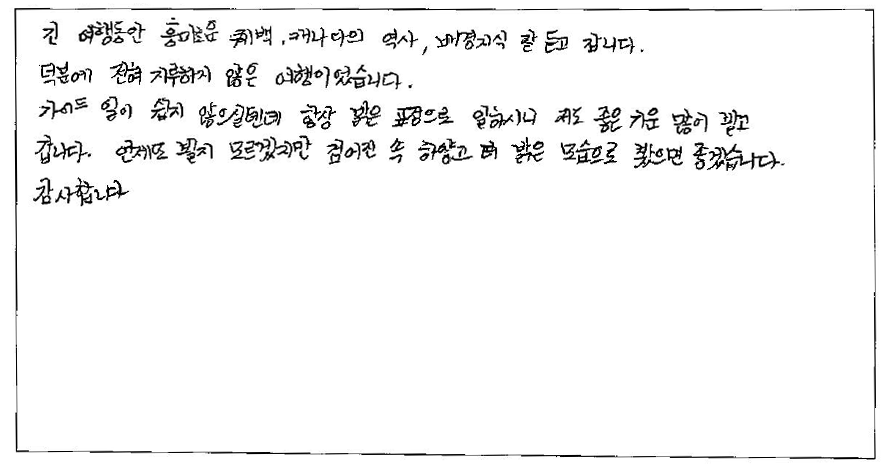 긴 여행동안 흥미로운 퀘백, 캐나다의 역사, 배경지식 잘 듣고 갑니다.
덕분에 전혀 지루하지 않은 여행이었습니다.
가이드 일이 쉽지 않으실텐데 항상 밝은 표정으로 일하시니 저도 좋은 기운 많이 받고
갑니다. 언제또 뵐지 모르겠지만 검어진 속 하얗고 더 밝은 모습으로 뵀으면 좋겠습니다.
감사합니다